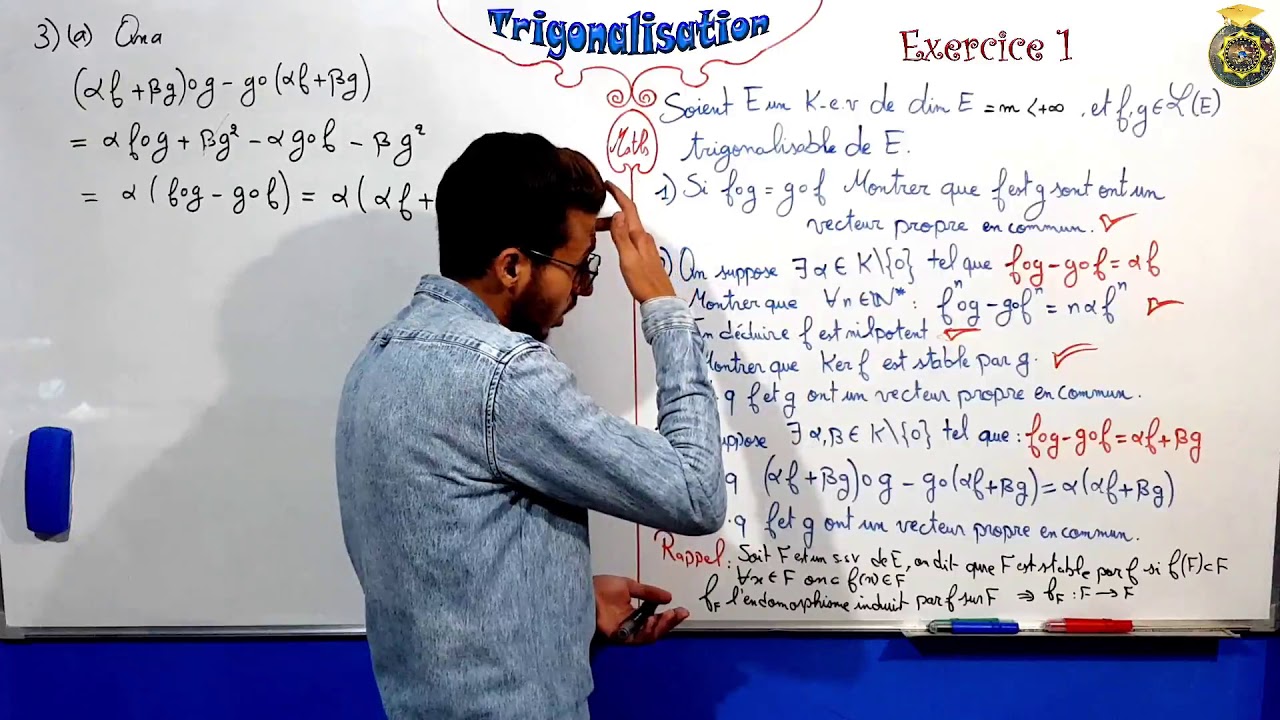 Trigonalisation
Exercice 1
3) (a) On a
(αf + βg)∘g - g∘(αf + βg)
= αf∘g + βg² - αg∘f - βg²
= α(f∘g - g∘f) = α(αf +
Maths
Soient E un K-e.v de dim E = m < +∞, et f,g ∈ ℒ(E)
trigonalisable de E.
1) Si f∘g = g∘f Montrer que f est g sont ont un
vecteur propre en commun.
) On suppose ∃ α ∈ K\{0} tel que f∘g - g∘f = αf
Montrer que ∀n ∈ ℕ* : fⁿ∘g - g∘fⁿ = nαfⁿ
En déduire f est nilpotent
Montrer que Ker f est stable par g.
q f et g ont un vecteur propre en commun.
suppose ∃ α,β ∈ K\{0} tel que : f∘g - g∘f = αf + βg
q (αf + βg)∘g - g∘(αf + βg) = α(αf + βg)
.q f et g ont un vecteur propre en commun.
Rappel : Soit F est un s.s.v de E, on dit que F est stable par f si f(F) ⊂ F
∀x ∈ F on a f(x) ∈ F
f_F l'endomorphisme induit par f sur F ⇒ f_F : F → F